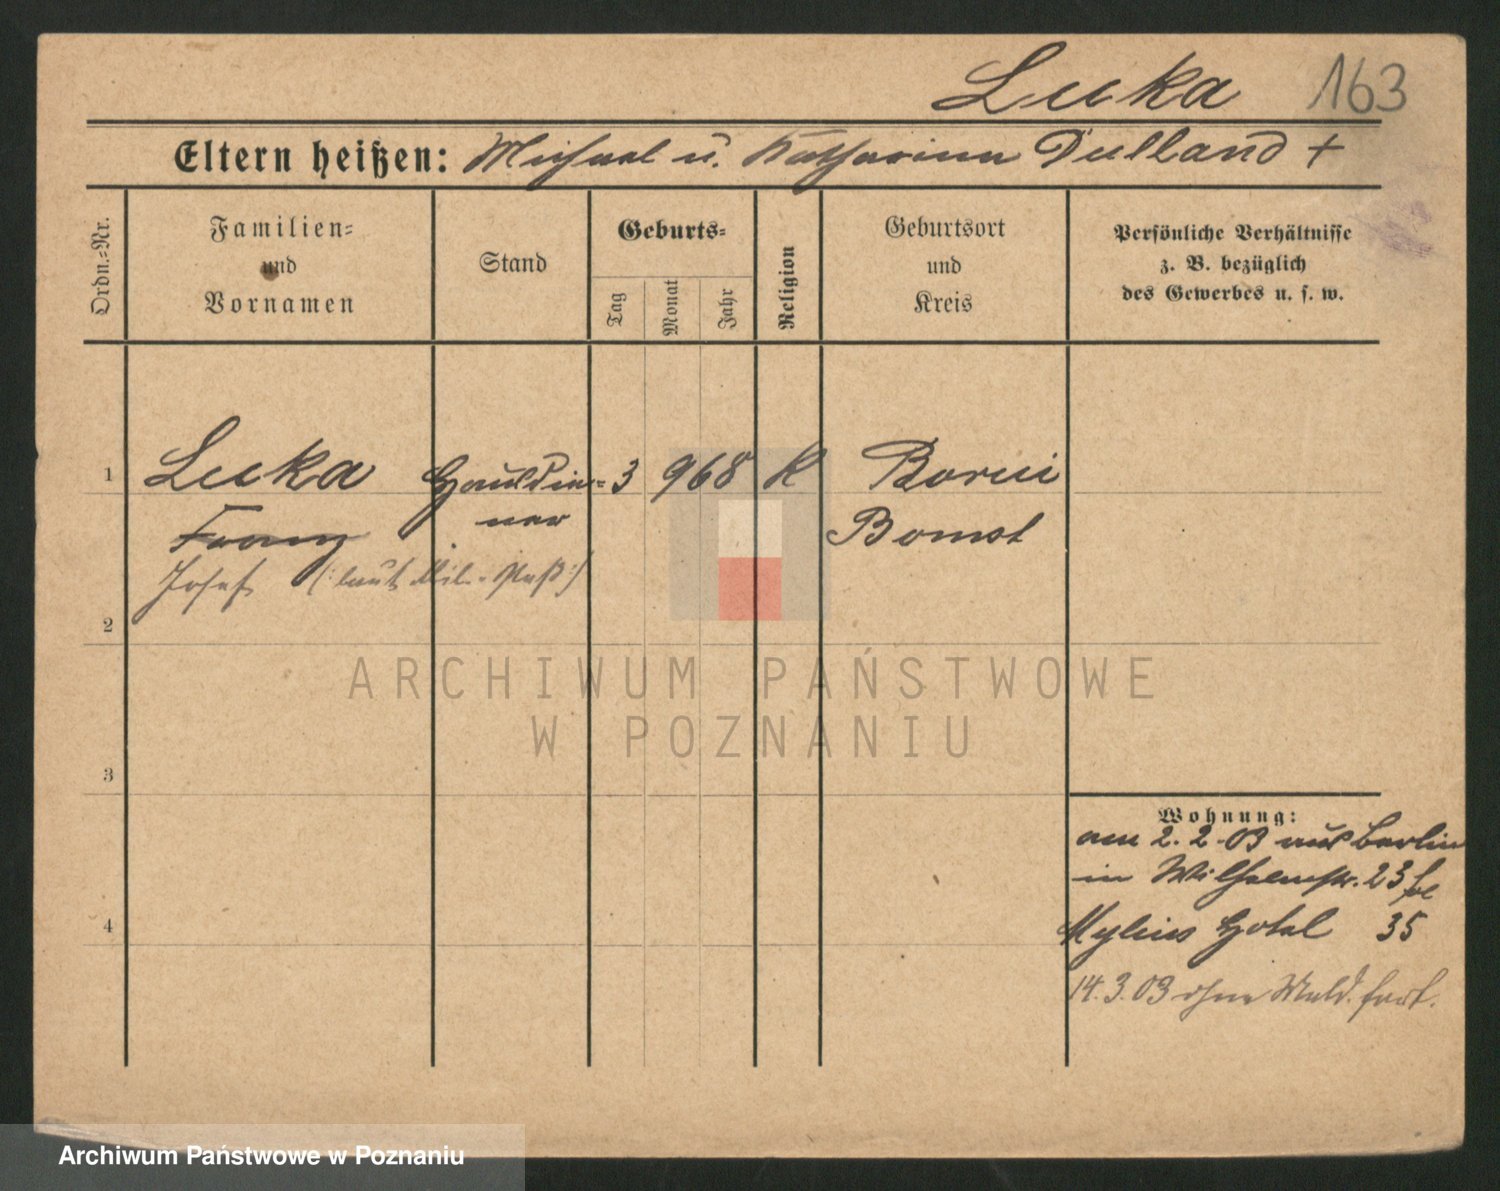 Luka 163
Eltern heißen: Michael u. Katharina Dulland +
Ordn.-Nr.
Familien-
und
Vornamen
Stand
Geburts-
Tag
Monat
Jahr
Religion
Geburtsort
und
Kreis
Persönliche Verhältnisse
z. B. bezüglich
des Gewerbes u. s. w.
1 Luka Hausdie- 3 9 68 K Borui
Franz ner Bomst
Josef (: laut Mil.-Paß :)
2
ARCHIWUM PAŃSTWOWE
W POZNANIU
3
Wohnung:
am 2.2.03 aus Berlin
in Wilhelmstr. 23
4 Mylius Hotel 35
14.3.03 ohne Meld. fort.
Archiwum Państwowe w Poznaniu